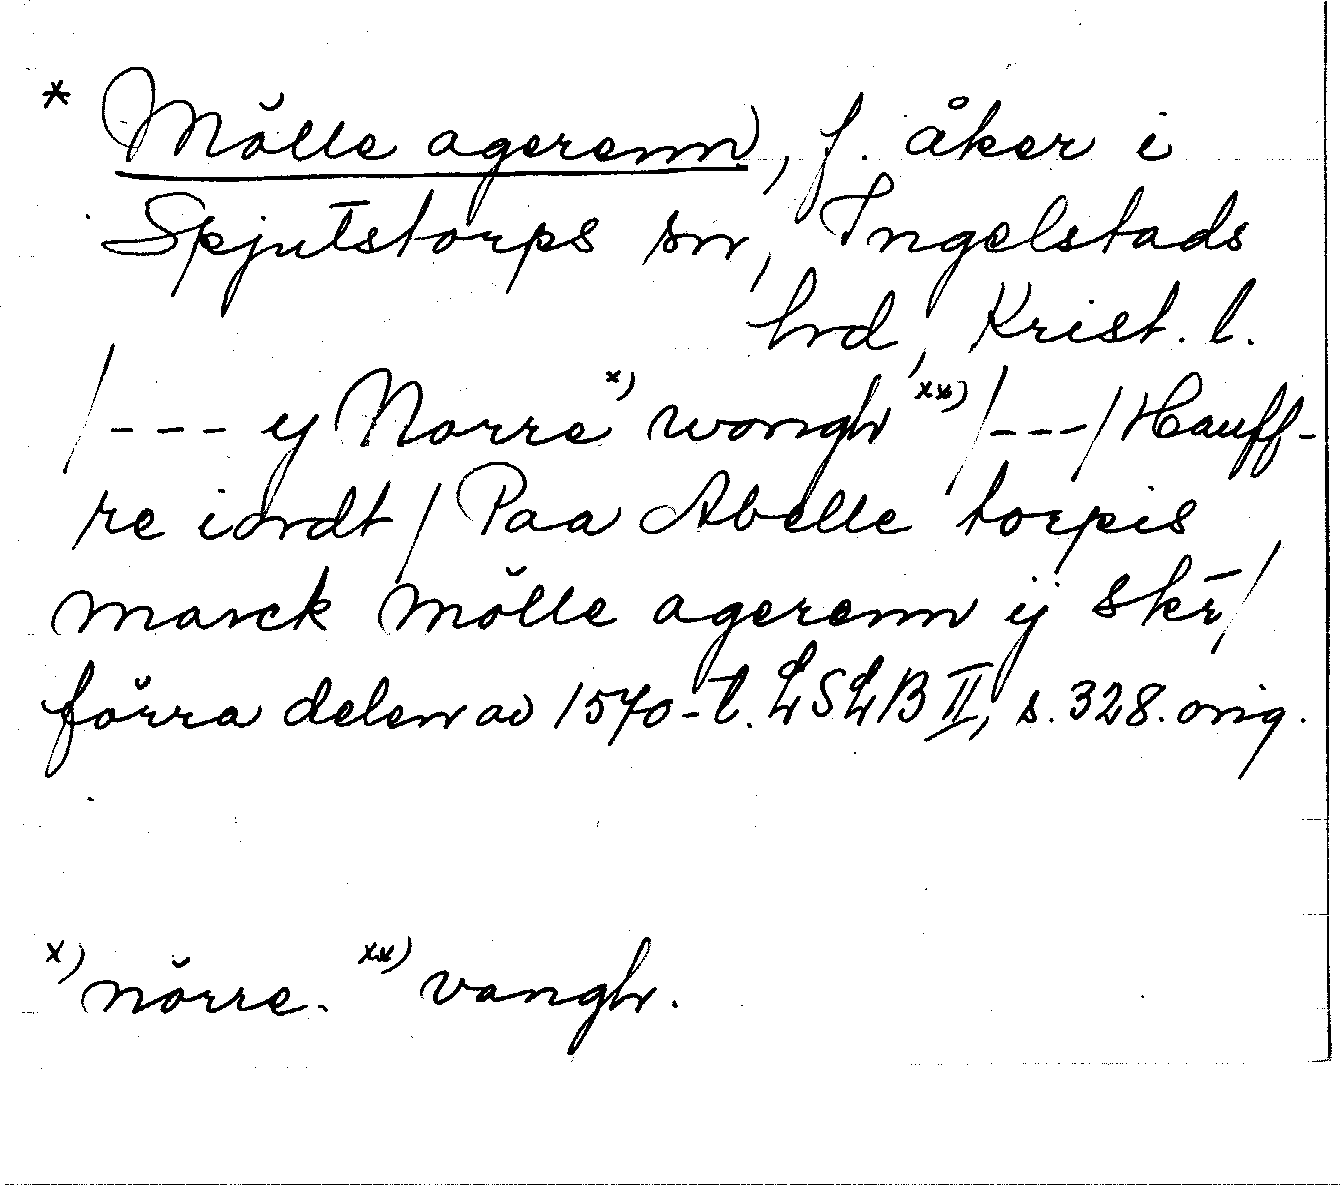 * Mölle agerenn, f. åker i
Spjutstorps sn, Ingelstads
hrd, Krist. l.
/--- ij Norre x) wongh xx) /---/ Hauff-
re iordt / Paa Abelle torpis
marck mölle agerenn ij skr̄/
förra delen av 1570-t. LSLB II, s. 328. orig.
x) nörre. xx) vangh.